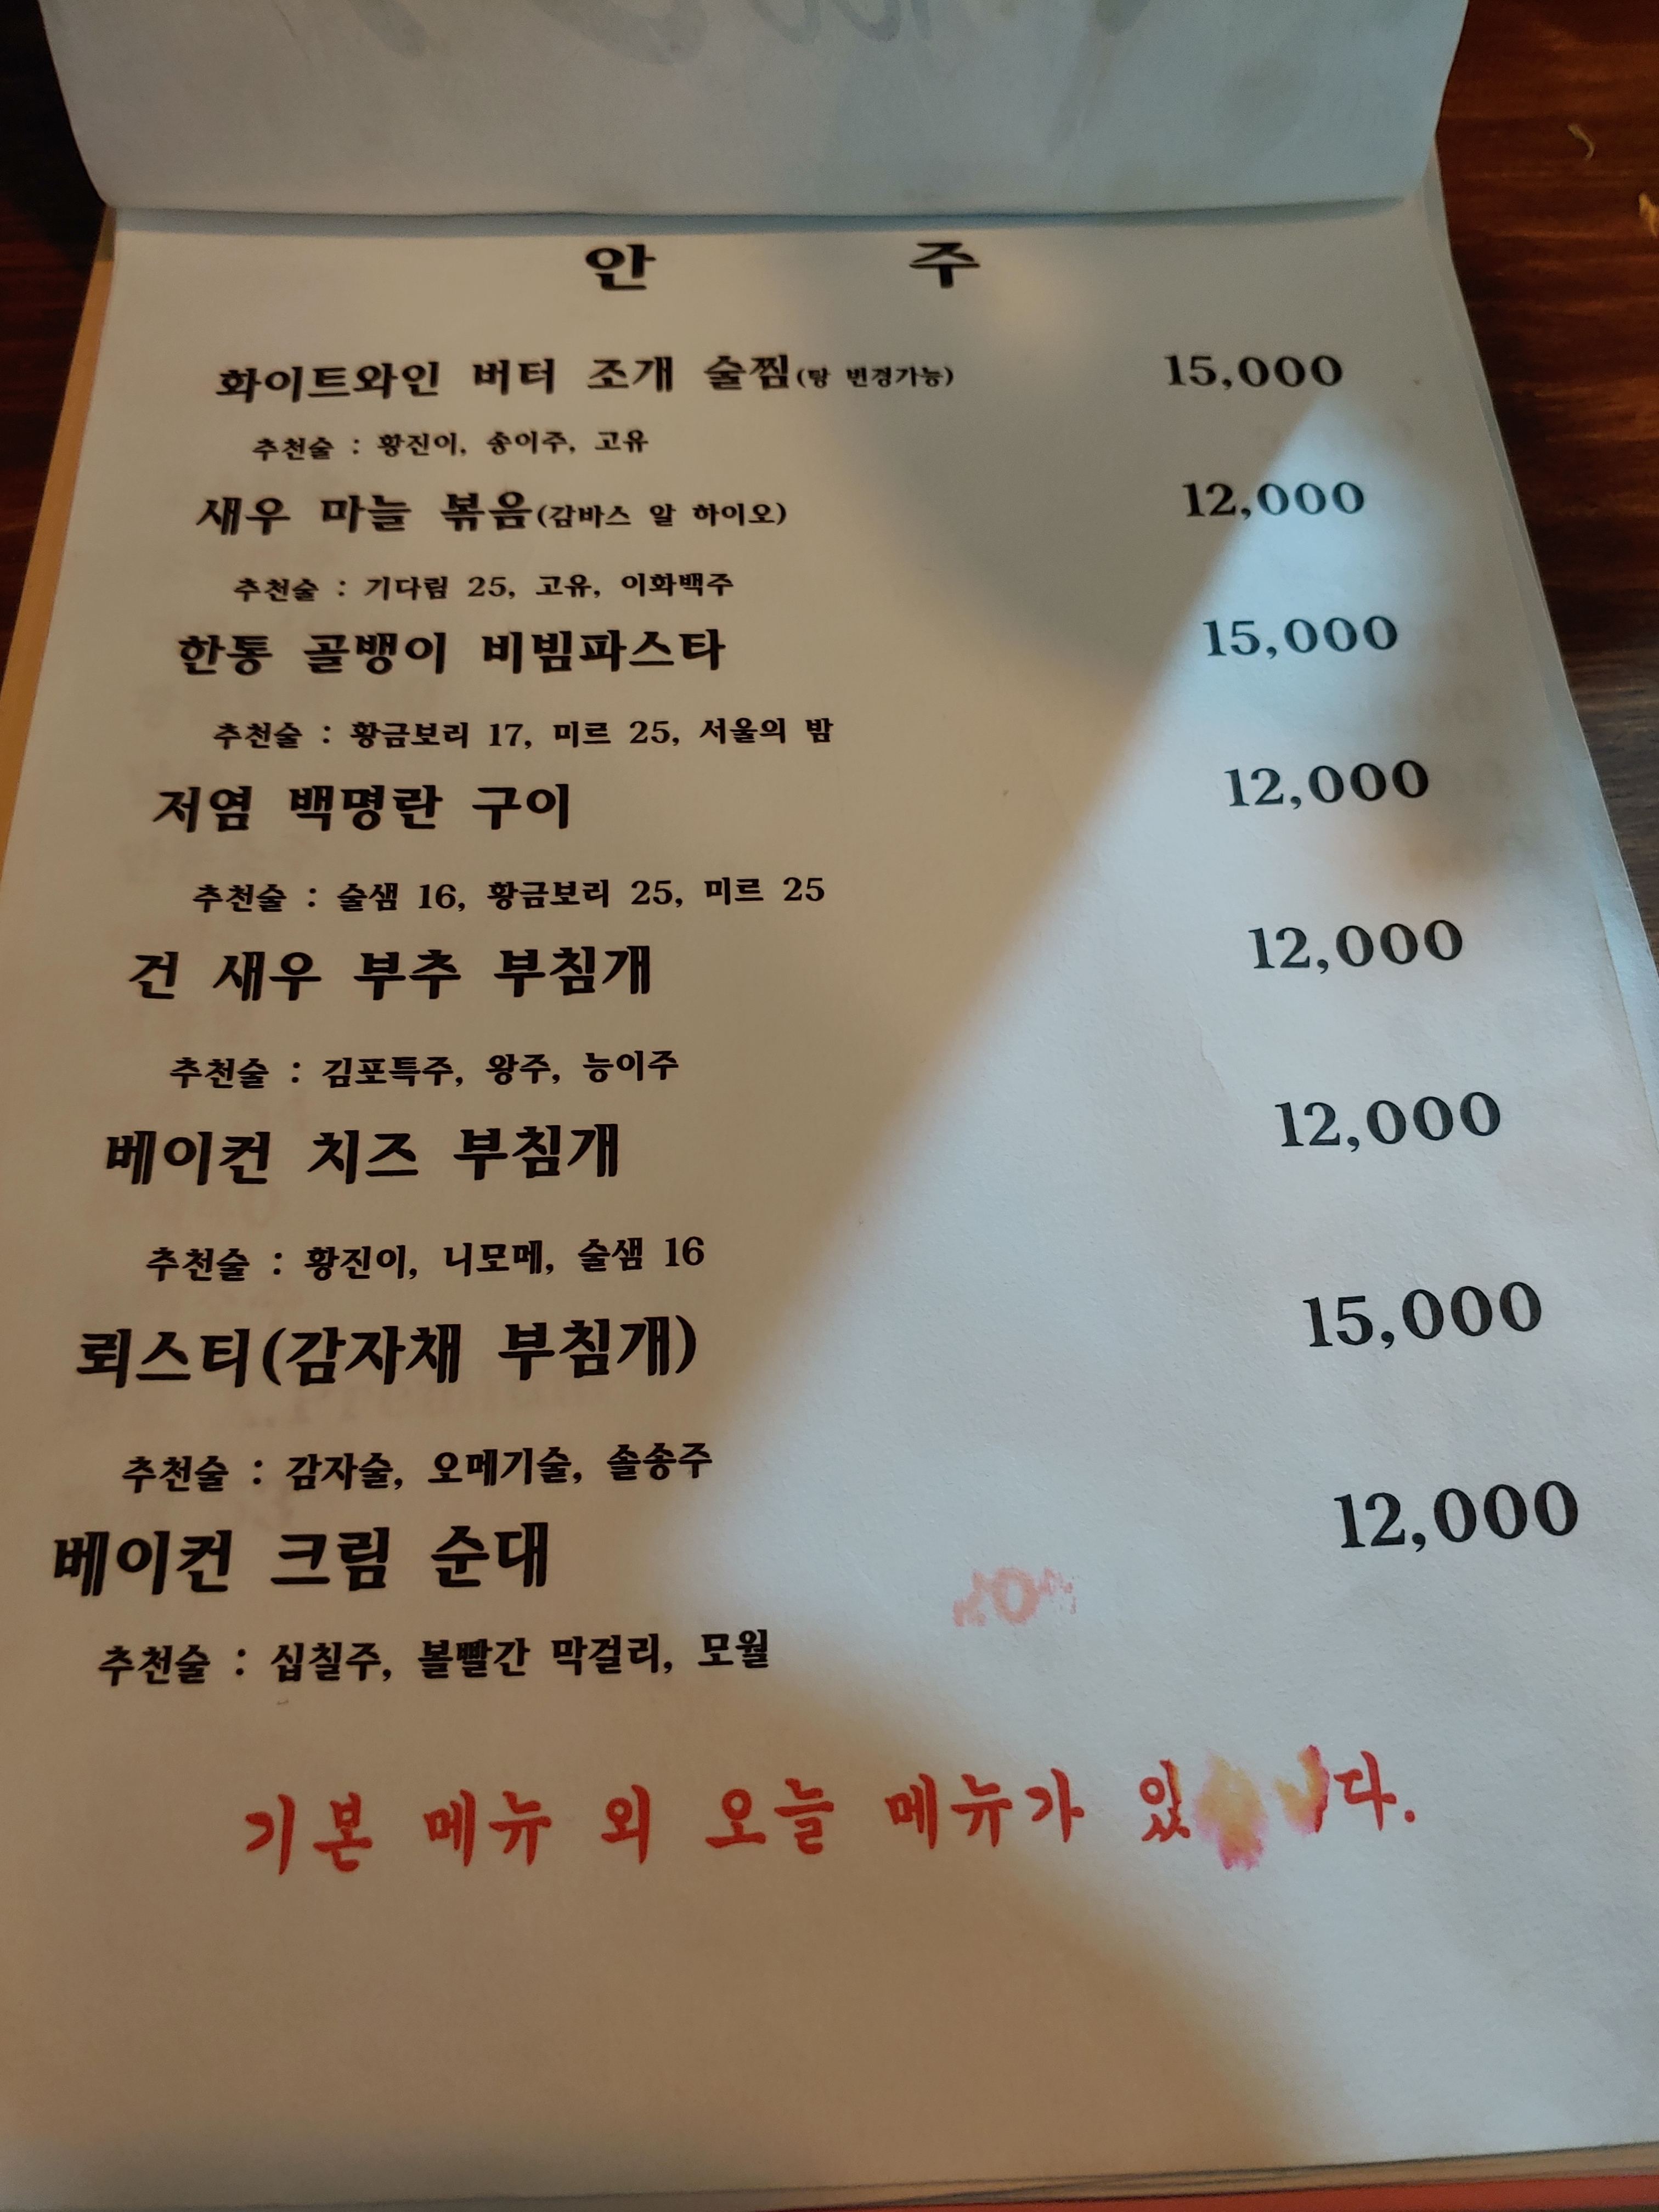 안 주
화이트와인 버터 조개 술찜(탕 변경가능) 15,000
추천술 : 황진이, 송이주, 고유
새우 마늘 볶음(감바스 알 하이오) 12,000
추천술 : 기다림 25, 고유, 이화백주
한통 골뱅이 비빔파스타 15,000
추천술 : 황금보리 17, 미르 25, 서울의 밤
저염 백명란 구이 12,000
추천술 : 술샘 16, 황금보리 25, 미르 25
건 새우 부추 부침개 12,000
추천술 : 김포특주, 왕주, 능이주
베이컨 치즈 부침개 12,000
추천술 : 황진이, 니모메, 술샘 16
뢰스티(감자채 부침개) 15,000
추천술 : 감자술, 오메기술, 솔송주
베이컨 크림 순대 12,000
추천술 : 십칠주, 볼빨간 막걸리, 모월
기본 메뉴 외 오늘 메뉴가